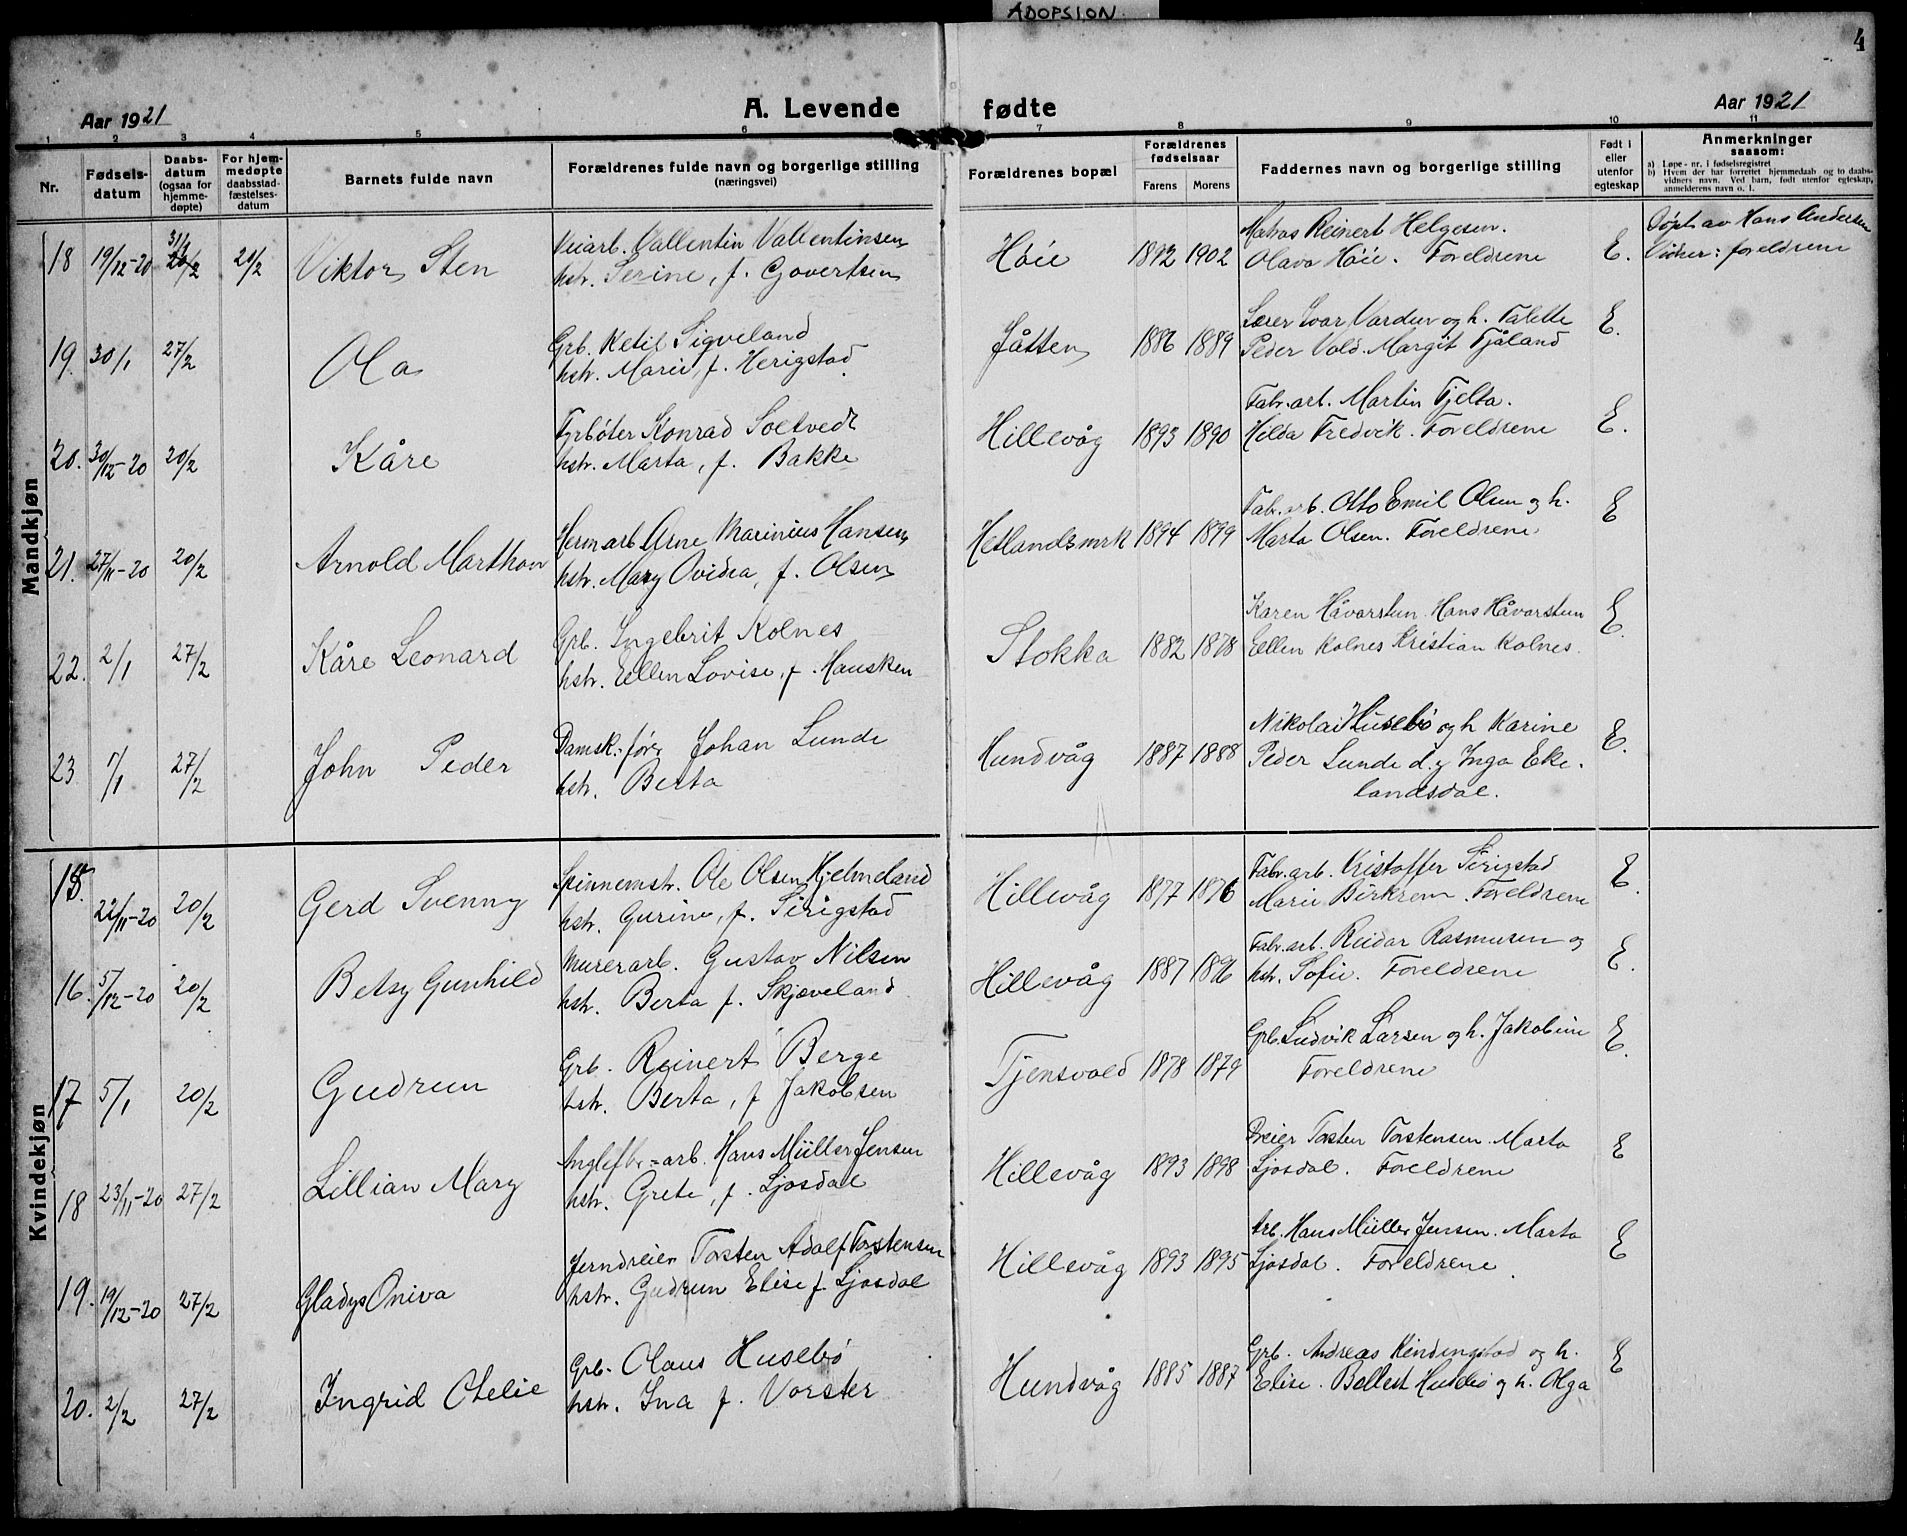 ADOPSION.
4
Aar 1921 A. Levende fødte Aar 1921
1 2 3 4 5 6 7 8 9 10 11
Nr.
Fødsels-
datum
Daabs-
datum
(ogsaa for
hjemme-
døpte)
For hjem-
medøpte
daabsstad-
fæstelses-
datum
Barnets fulde navn
Forældrenes fulde navn og borgerlige stilling
(næringsvei)
Forældrenes bopæl
Forældrenes
fødselsaar
Farens Morens
Faddernes navn og borgerlige stilling
Født i
eller
utenfor
egteskap
Anmerkninger
saasom:
a) Løpe-nr. i fødselsregistret
b) Hvem der har forrettet hjemmedaab og to daabs-
vidners navn. Ved barn, født utenfor egteskap,
anmelderens navn o. l.
Mandkjøn
18 19/12-20 20/2 Viktor Sten
Veiarb. Vallentin Vallentinsen
hstr. Serine, f. Govertsen
Høie 1892 1902
Matros Reinert Helgesen.
Olava Høie. Foreldrene
E.
Døpt av Hans Andersen
Vidner: foreldrene
19. 30/1 27/2 Ola
Grb. Ketil Sigveland
hstr. Marie, f. Herigstad.
Jåtten 1886 1889
Lærer Ivar Vardur og h. Talette
Peder Vold. Margit Tjåland
E.
20. 30/12-20 20/2 Kåre
Fyrbøter Konrad Soltvedt
hstr. Marta, f. Bakke
Hillevåg 1893 1890
Fabr.arb. Martin Tjelta.
Hilda Fredvik. Foreldrene
E.
21. 27/11-20 20/2 Arnold Marthon
Hermarb. Arne Marinius Hansen
hstr. Mary Ovidia, f. Olsen
Hetlandsmrk 1894 1899
Fabr.arb. Otto Emil Olsen og h.
Marta Olsen. Foreldrene
E
22. 2/1 27/2 Kåre Leonard
Grb. Ingebrit Kolnes
hstr. Ellen Lovise, f. Hausken
Stokka 1882 1878
Karen Håvarstun. Hans Håvarstun
Ellen Kolnes Kristian Kolnes.
E.
23 7/1 27/2 John Peder
Damsk.-fører Johan Lunde
hstr. Berta
Hundvåg 1887 1888
Nikolai Husebø og h Karine
Peder Lunde d.y Inga Eke-
landsdal.
E.
Kvindekjøn
15. 22/11-20 20/2 Gerd Svenny
Spinnemstr. Ole Olsen Hjelmeland
hstr. Gurine, f. Sirigstad
Hillevåg 1877 1876
Fabr.arb. Kristoffer Sirigstad
Marie Birkrem. Foreldrene
E.
16. 5/12-20 20/2 Betsy Gunhild
Murerarb. Gustav Nilsen
hstr. Berta f. Skjæveland
Hillevåg 1887 1896
Fabr.arb. Reidar Rasmusen og
hstr. Sofie. Foreldrene
E.
17 5/1 20/2 Gudrun
Grb. Reinert Berge
hstr. Berta, f Jakobsen
Tjensvold 1878 1879
Grb. Ludvik Larsen og h. Jakobine
Foreldrene
E.
18 23/11-20 27/2 Lillian Mary
Anglefbr-arb. Hans Müller Jensen
hstr. Grete, f. Ljosdal
Hillevåg 1893 1898
Dreier Torsten Torstensen. Marta
Ljosdal. Foreldrene
E
19. 19/12-20 27/2 Gladys Oniva
Jerndreier Torsten Adolf Torstensen
hstr. Gudrun Elise f. Ljosdal
Hillevåg 1893 1895
Arb. Hans Müller Jensen. Marta
Ljosdal. Foreldrene
E
20. 2/2 27/2 Ingrid Otelie
Grb. Olaus Husebø
hstr. Ina f. Vorster
Hundvåg 1885 1887
Grb. Andreas Kindingstad og h.
Elise. Bollest Husebø og h. Olga
E